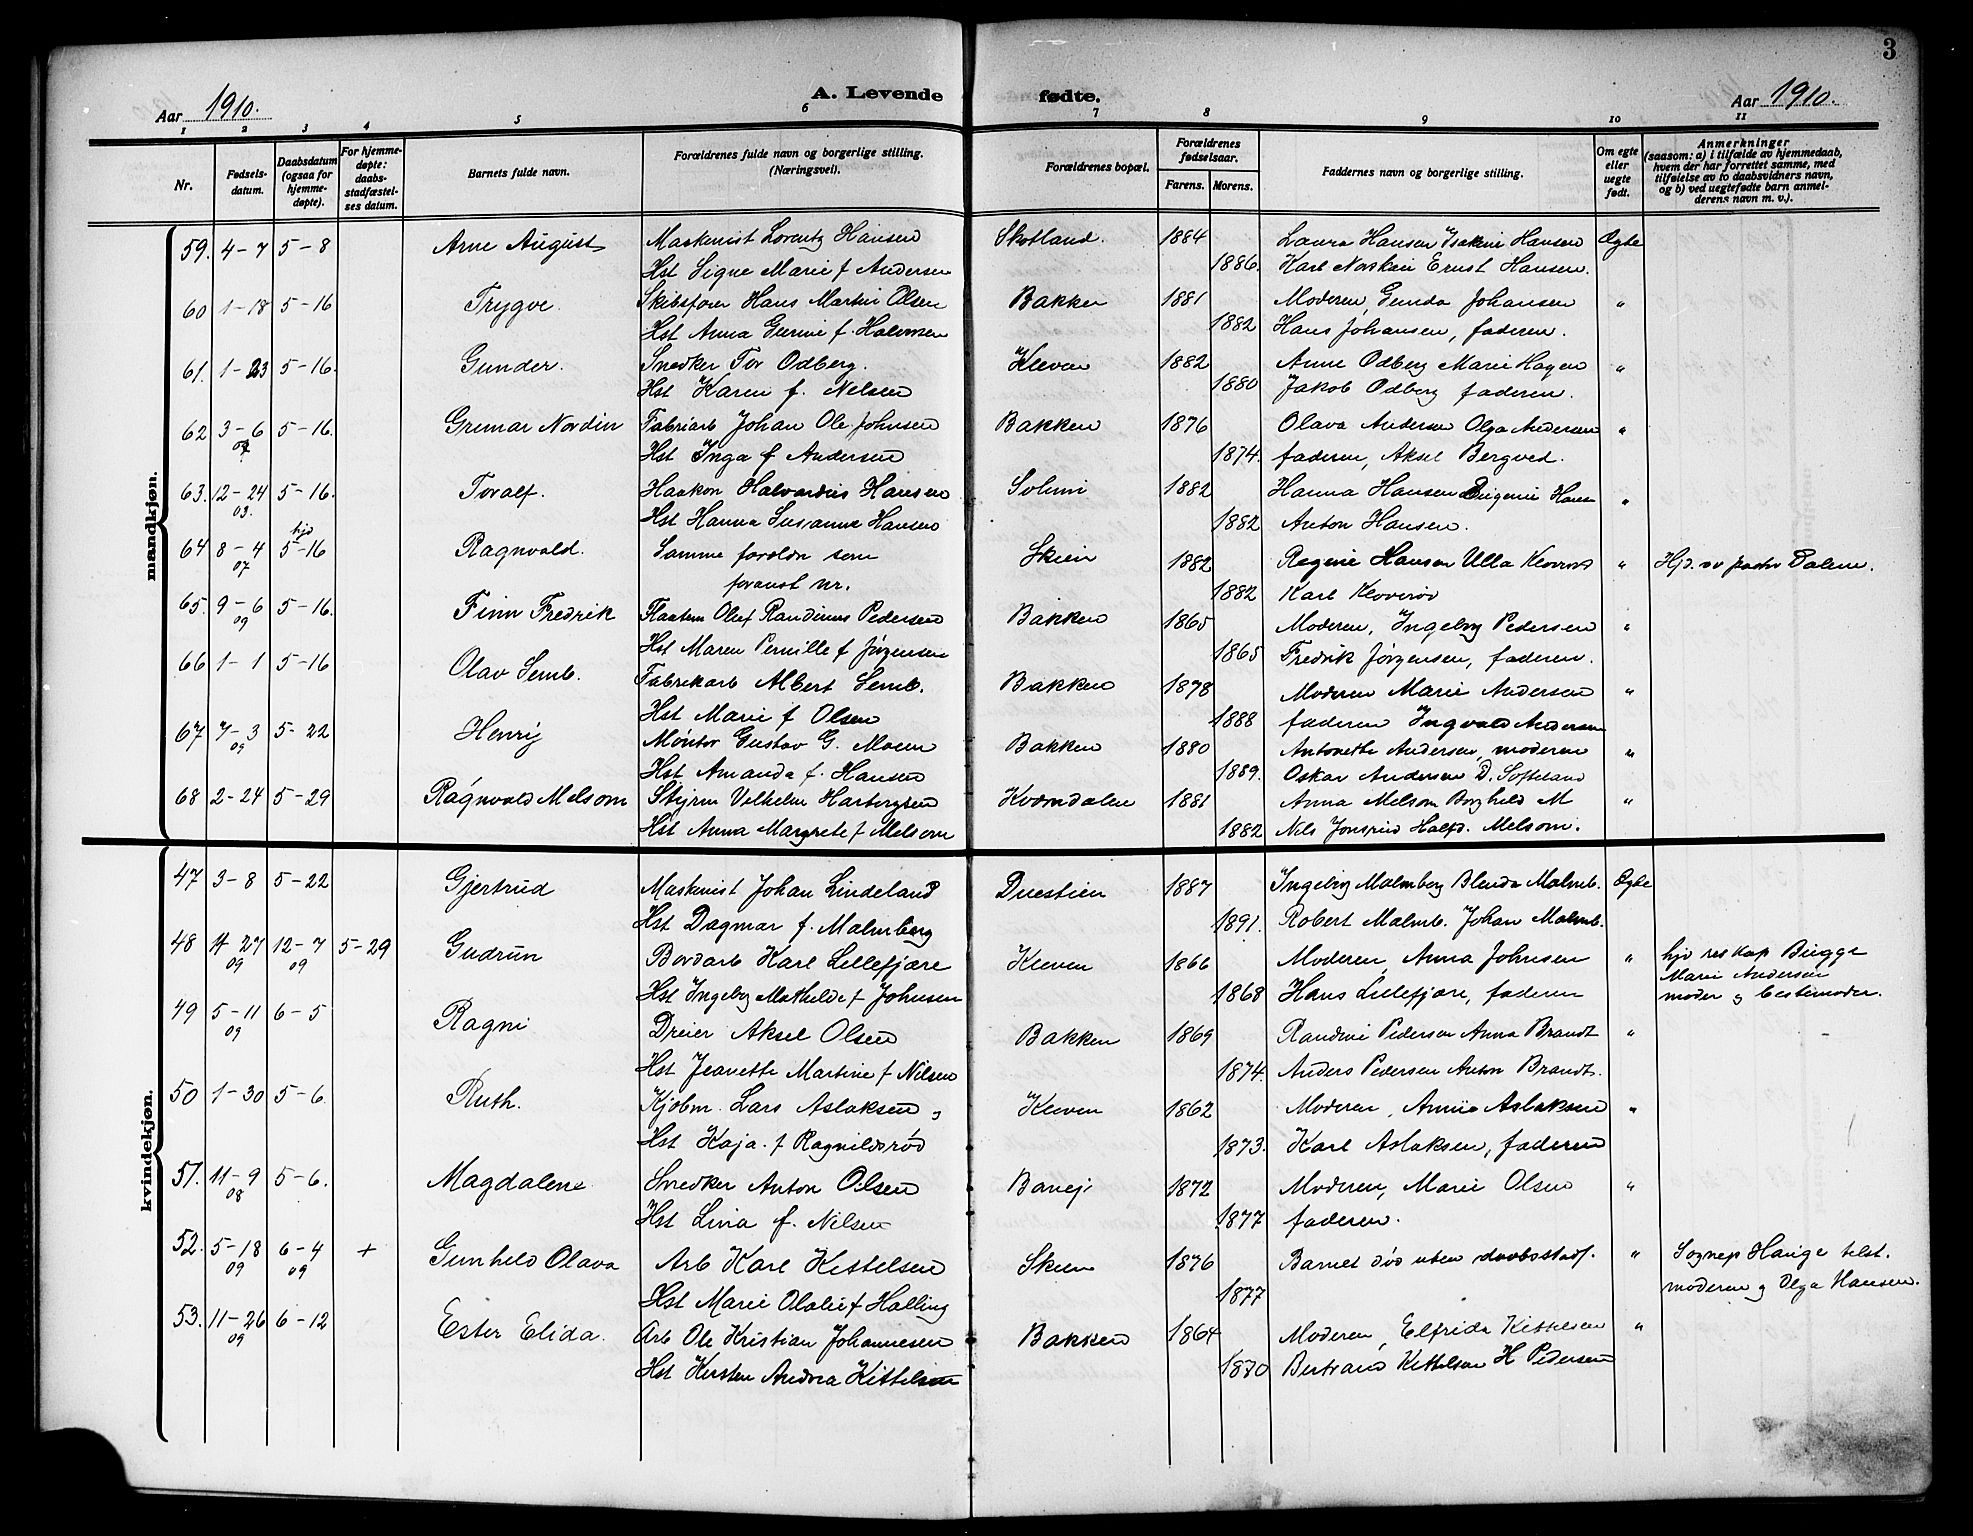 3
Aar 1910. A. Levende fødte. Aar 1910.
1 2 3 4 5 6 7 8 9 10 11
Nr. Fødsels-datum. Daabsdatum (ogsaa for hjemme-døpte). For hjemme-døpte: daabs-stadfæstel-ses datum. Barnets fulde navn. Forældrenes fulde navn og borgerlige stilling. (Næringsvei). Forældrenes bopæl. Forældrenes fødselsaar. Farens. Morens. Faddernes navn og borgerlige stilling. Om egte eller uegte født. Anmerkninger (saasom: a) i tilfælde av hjemmedaab, hvem der har forrettet samme, med tilføielse av to daabsvidners navn, og b) ved uegtefødte barn anmel-derens navn m. v.).
mandkjøn.
59. 4-7 5-8 Arne August Maskinist Lorentz Hansen Skotland. 1884 Laura Hansen Hansen Ægte
Hst Signe Marie f Andersen 1886. Karl Ernst Hansen.
60 1-18 5-16 Trygve. Skibsfører Hans Martin Olsen Bakken 1881 Moderen, Gunda Johansen "
Hst Anna f. Halvorsen 1882 Hans Johansen, faderen.
61. 1-23 5-16. Gunder. Snedker Tor Odberg. Kleven 1882 Anne Odberg Marie Hagen "
Hst Karen f. Nelsen 1880 Jakob Odberg faderen.
62 3-6 5-16. Nordin Fabriarb Johan Ole Johnsen Bakken 1876 Olava Andersen Olga Andersen "
Hst Inga f Andersen 1874. faderen, Aksel
63. 12-24 5-16. Toralf. Haakon Hansen Solum 1882 Hanna Hansen "
03. Hst Hanna Susanna Hansen 1882 Anton Hansen.
64 8-4 hjd 5-16 Ragnvald. Samme foreldr som Skien 1882 Regine Hansen Ulla " Hjd. av Dalen.
07 foranst nr. 1882 Karl
65. 9-6 5-16. Finn Fredrik Olef Randinus Pedersen Bakken 1865 Moderen, Ingeborg Pedersen "
09 Hst Maren Pernille f Jørgensen 1865 Fredrik Jørgensen, faderen.
66 1-1 5-16 Olav Semb. Fabrikarb Albert Semb. Bakken 1878 Moderen Marie Andersen "
Hst Marie f Olsen 1888 faderen Ingvald Andersen
67 7-3 5-22 Henry Møntør Gustav G. Moen Bakken 1880 Antonette Andersen, moderen "
09 Hst Amanda f. Hansen 1889. Oskar Andersen D. Softeland
68 2-24 5-29 Ragnvald Melsom Styrm Vilhelm Harbergsen Kværndalen 1881 Anna Melsom Borghild M "
Hst Anna Margrete f Melsom 1882 Nils Halfd. Melsom.
kvindekjøn.
47 3-8 5-22 Gjertrud Maskinist Johan Lindeland Duestien 1887 Ingeborg Malmberg Blenda Malmb. Ægte
Hst Dagmar f. Malmberg 1891. Robert Malmb. Johan Malmb.
48 11-27 12-7 5-29 Gudrun Bordarb Karl Lillefjære Kleven 1866 Moderen, Anna Johnsen " hjd res kap Bugge
09 09 Hst Ingeborg Mathilde f Johnsen 1868 Hans Lillefjære, faderen Marie Andersen
moder og bestemoder.
49 5-11 6-5 Ragni Dreier Aksel Olsen Bakken 1869 Randine Pedersen Anna Brandt "
09 Hst Jeanette Martine f Nilsen 1874. Anders Pedersen Anton Brandt.
50 1-30 5-6. Ruth. Kjøbm. Lars Aslaksen, Kleven 1862 Moderen, Aslaksen "
Hst Kaja. f Ragnildsrød 1873. Karl Aslaksen, faderen
51. 11-9 5-6. Magdalene Snedker Anton Olsen 1872 Moderen, Marie Olsen "
08 Hst Lina f. Nilsen 1877 faderen.
52. 5-18 6-4 + Gunhild Olava Arb Karl Kittelsen Skien 1876 Barnet død uten daabsstadf. " Sognep Hauge telst.
09 09 Hst Marie Olalie f Halling 1877 moderen og Olga Hansen.
53. 11-26 6-12 Ester Elida. Arb Ole Kristian Johannesen Bakken 1864 Moderen, Elfrida Kittelsen "
09 Hst Kirsten Andrea Kittelsen 1870 Bertrand Kittelsen H Pedersen